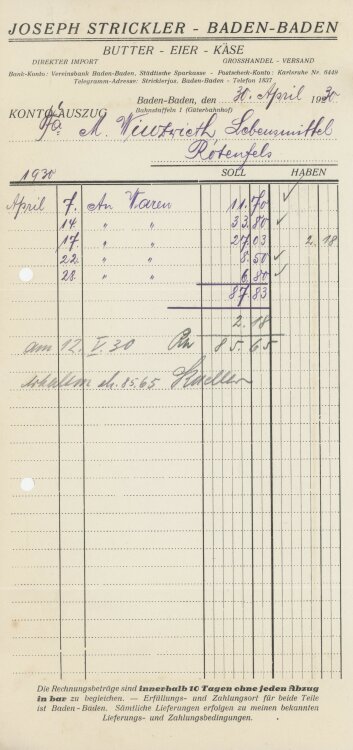 JOSEPH STRICKLER - BADEN-BADEN
BUTTER - EIER - KÄSE
DIREKTER IMPORT GROSSHANDEL - VERSAND
Bank-Konto: Vereinsbank Baden-Baden, Städtische Sparkasse - Postscheck-Konto: Karlsruhe Nr. 6449
Telegramm-Adresse: Stricklerjos. Baden-Baden - Telefon 1837
Baden-Baden, den 30. April 1930
Bahnstaffeln 1 (Güterbahnhof)
KONTO-AUSZUG
Fa. M. Lebensmittel
Rotenfels
1930 SOLL HABEN
April 7. An Waren 11.70
14. " " 33.80
17. " " 27.03 2.18
22. " " 8.50
28. " " 6.80
87.83
2.18
am 12. V. 30 85.65
erhalten 85.65
Die Rechnungsbeträge sind innerhalb 10 Tagen ohne jeden Abzug
in bar zu begleichen. — Erfüllungs- und Zahlungsort für beide Teile
ist Baden-Baden. Sämtliche Lieferungen erfolgen zu meinen bekannten
Lieferungs- und Zahlungsbedingungen.